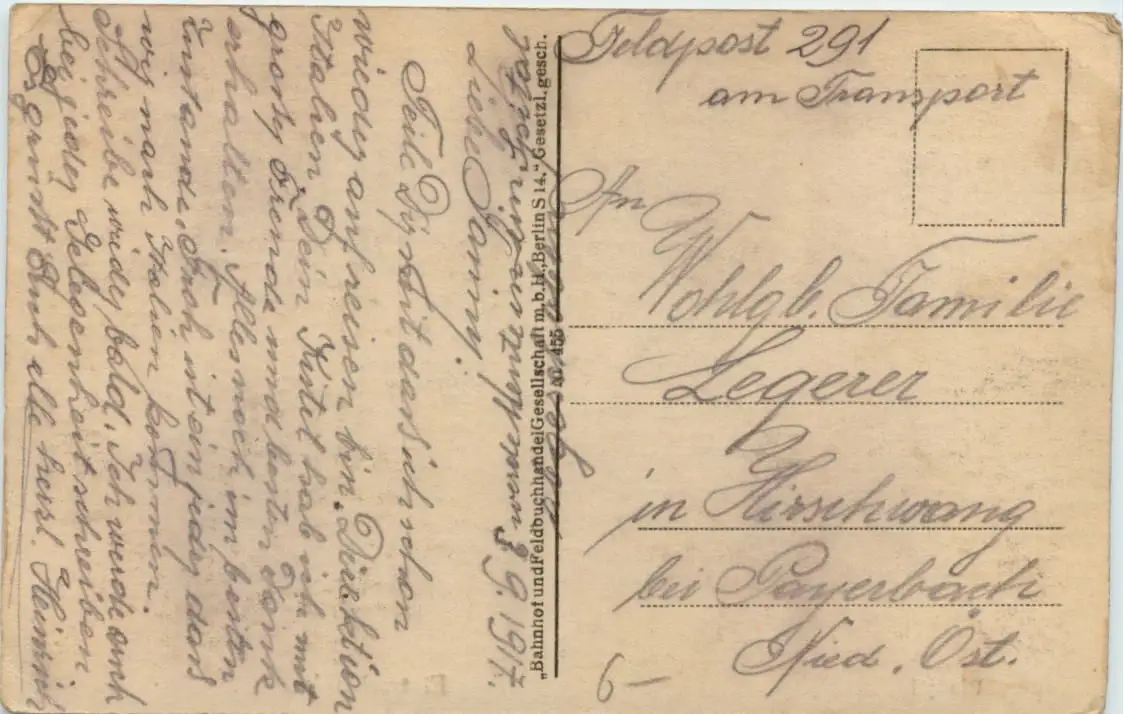 Feldpost 291
am Transport
An
Wohlgb. Familie
Legerer
in Hirschwang
bei Payerbach
Nied. Öst.
6-
"Bahnhof und Feldbuchhandel Gesellschaft m.b.H., Berlin S 14." Gesetzl. gesch.
455
3.9.1917.
Liebe Fanny!
Teile Dir mit dass ich schon
wieder auf reisen bin. Direktion
Italien. Dein Kistel hab ich mit
großer Freude und besten Dank
erhalten. Alles noch im besten
Zustande. Froh ist ein jeder das
wir nach Italien kommen.
Schreibe wieder bald. Ich werde auch
bei jeder Gelegenheit schreiben
Es grüsst Euch alle herzl. Heinrich